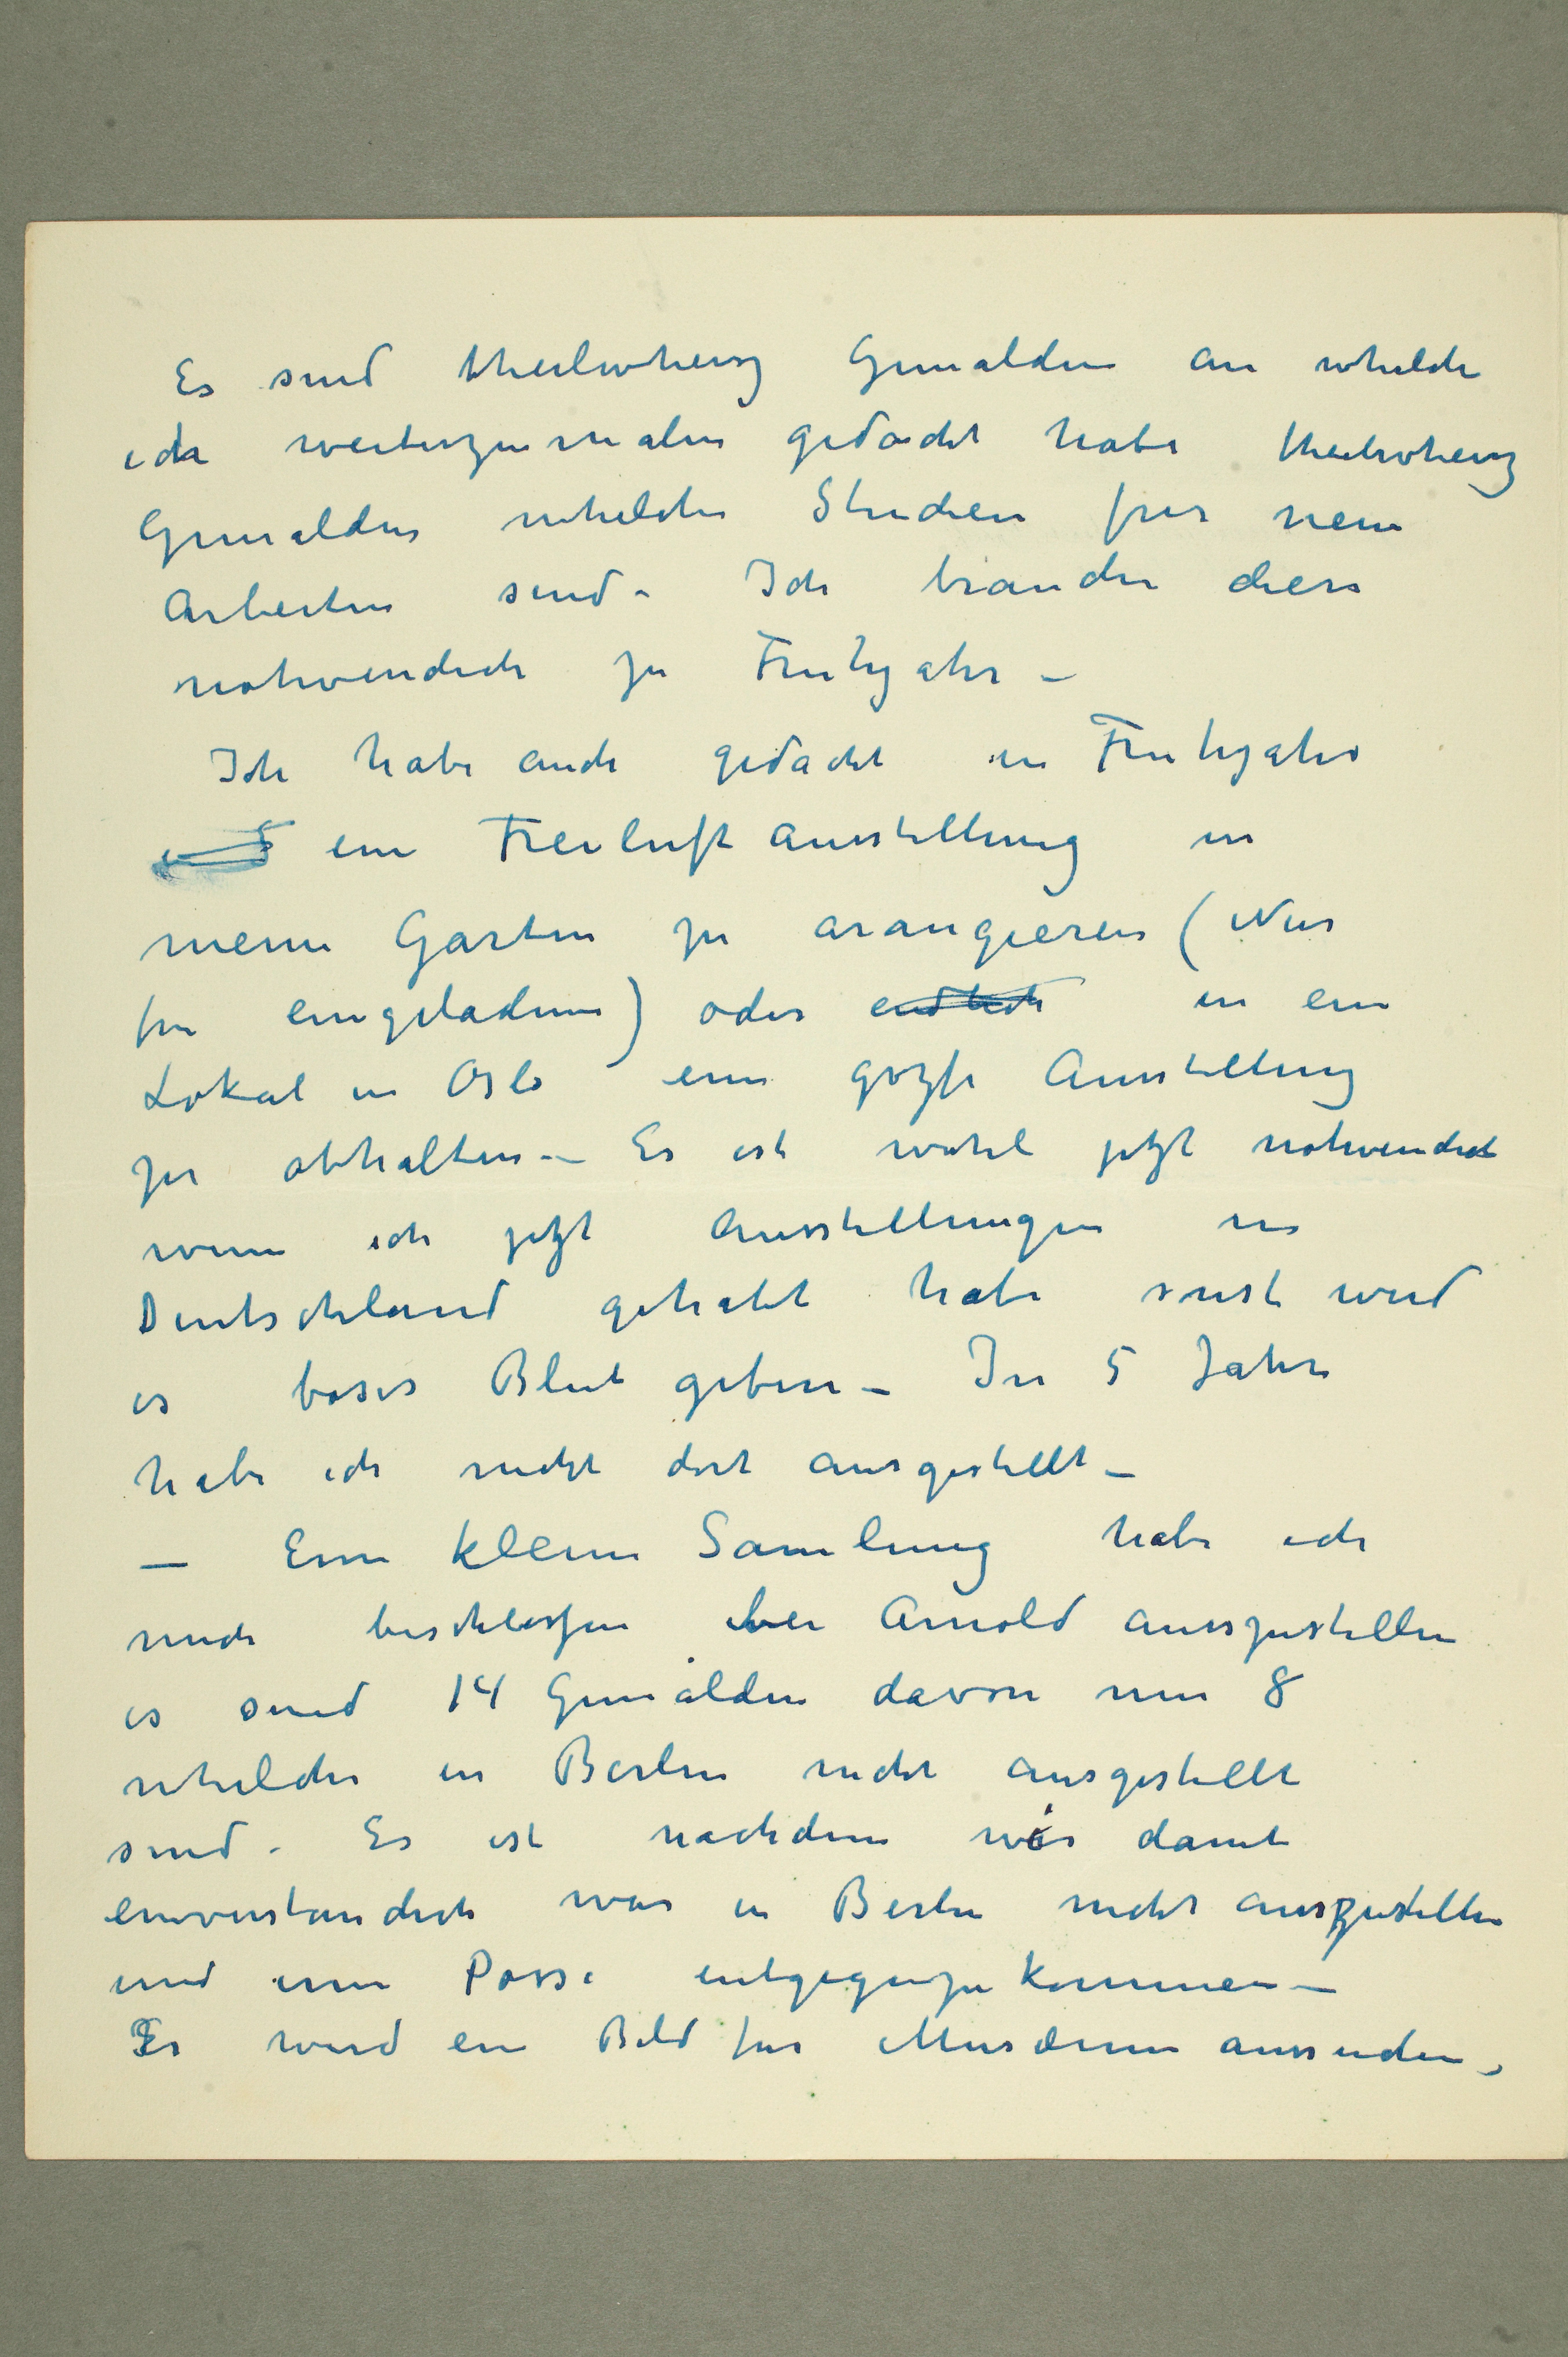 Es sind theilwheisz Gemälden an whelche
ich weiterzumalen gedacht habe theilwheisz
Gemälden whelche Studien für neue
Arbeiten sind – Ich brauche diese
nothwendich zu Fruhjahr –
Ich habe auch gedacht in Fruhjahr
eine Freiluftausstellung in
meine Garten zu arangieren (Nur
für eingeladene) oder endlich in ein
Lokal in Oslo eine grosze Ausstellung
zu abhalten – Es ist wohl jetzt nothwendich
wenn ich jetzt Ausstellungen in
Deutschland gehabt habe sonst wird
es böses Blut geben – In 5 Jahre
habe ich nicht dort ausgestellt –
– Eine kleine Samlung habe ich
mich beschloszen bei Arnold auszustellen
es sind 14 Gemälden davon nur 8
whelche in Berlin nicht ausgestellt
sind – Es ist nachdem wir damit
einverstandich war in Berlin nicht auszustellen
und um Posse entgegenzukommen –
Er wird ein Bild für Musæum aussuchen –